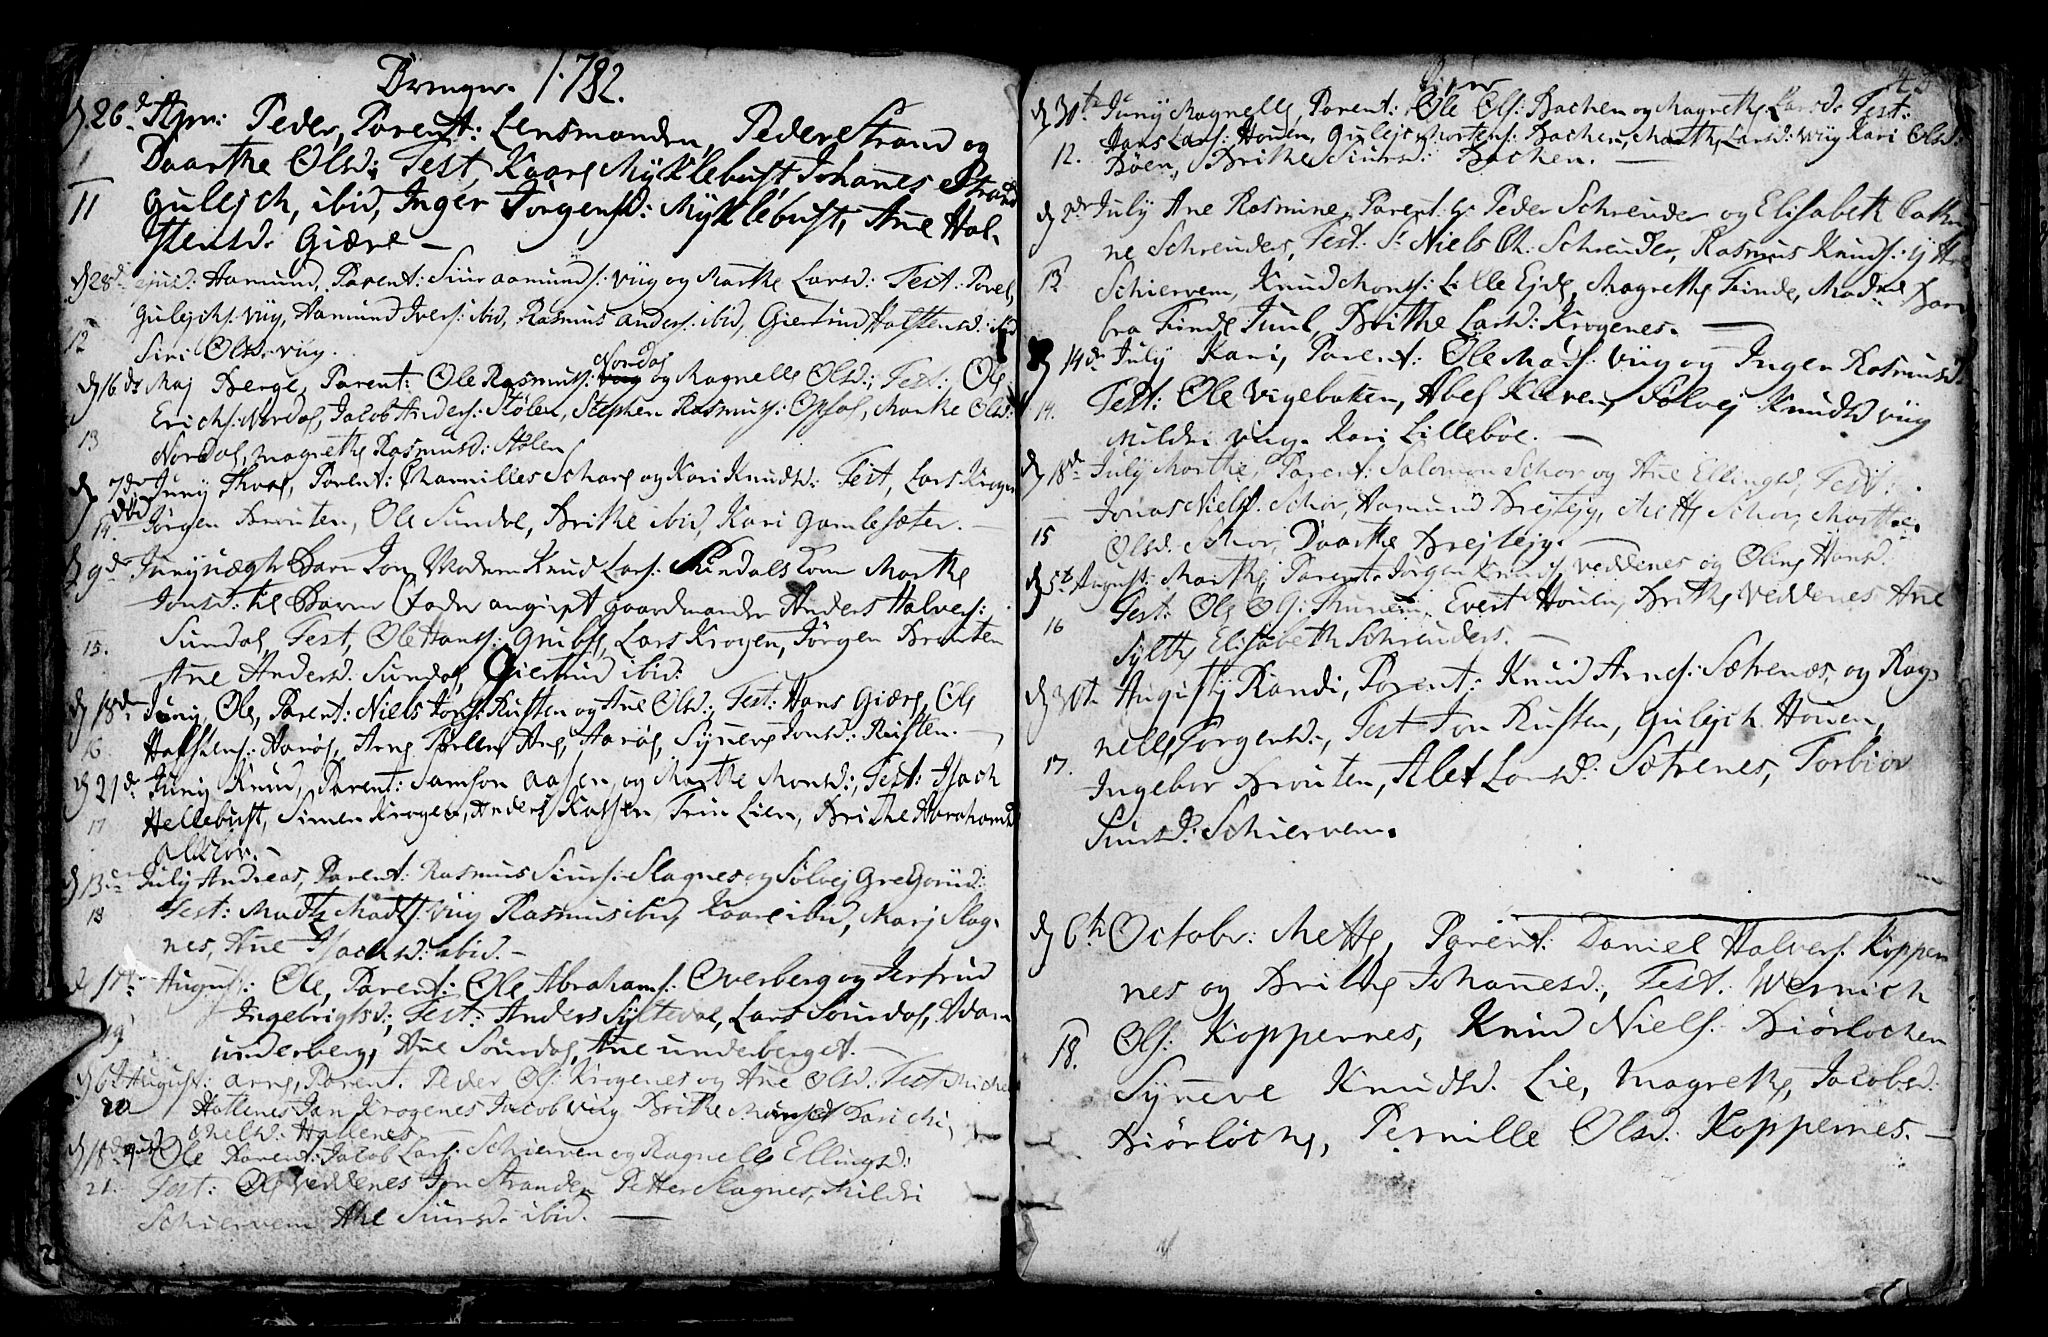 Drenger. 1782.
d 26d Apr: Peder, Parent: Lensmanden, Peder Strand og
Daarthe Olsd: Test, Kaare Myklebust, Johanes Strand
11 Gulejch, ibid, Inger Jørgensd: Myklebust, Ane Hal-
stensd. Giære –
d 28d ejusd: Aamund, Parent: Siur aamunds: viig og Marthe Larsd: Test: Povel
Gulejchs: viig, Aamund Ivers: ibid, Rasmus Anders: ibid, Giertrud Halstensd:
12 Siri Olsd: viig.
d 16de Maj Berge, Parent: Ole Rasmuss: Nordal og Magnelle Olsd:, Test: Ole
Erichs: Nordal, Jacob Anders: Stølen, Stephen Rasmuss: Opsal, Marthe Olsd:
13 Nordal, Magrethe Rasmusd: Stølen
d 7de Juny Thval, Parent: Thamilles Schare og Kari Knudsd: Test, Lars Krogen
død
14. Jørgen Brouten, Ole Sundal, Brithe ibid, Kari Gamlesæter. –
d 9de Juny uægte Barn Jon Moderen Knud Lars: Sundals Kone Marthe
Jonsd: til Barne Fader angivet gaardmanden Anders Halvers:
15. Sundal, Test, Ole Hans: Grubs, Lars Krogen, Jørgen Brouten
Ane Andersd. Sundal, Giertrud ibid:
d 18de Juny, Ole, Parent: Niels Jons: Rusten og Ane Olsd:, Test: Hans Giære, Ole
16 Halstens: Aarøe, Arne Aarøe, Syneve Jonsd: Rusten. –
d 21de Juny Knud, Parent: Samson Aasen og Marthe Monsd:, Test: Isach
17 Hellebust, Simen Krogen, Anders Kaasen, Trin Lien, Brithe Abrahamsd:
d 13de July Andreas, Parent: Rasmus Siurs: Slagnes og Sølvej Gregoriid:
18 Test: Madtz Madts: viig Rasmus ibid, Kaare ibid, Marj Slag-
nes, Ane Isachsd: ibid. –
d August: Ole, Parent: Ole Abrahams: Overberg og Jertrud
Ingebrigtsd:, Test: Anders Syltedal, Lars Sourdal, Adam
19 underberg, Ane Sourdal, Ane underberget. –
d 6t August: Arne, Parent. Peder Ols: Krogenes og Ane Olsd: Test Miche
20 Hatlenes Jan Krogenes Jacob viig Brithe Barichi
chelsd: Hatlenes
d 18de Ole Parent: Jacob Lars: Schierven og Ragnelle Ellingsd:
21. Test: Ole Veddenes Jon Stranden Petter Slagnes, Mildri
Schiervem Ane Siursd: ibid. –
Piger
d 30te Juny Magnelle, Parent: Ole Ols: Bachen og Magrethe Larsd: Test:
Hans Lars: Houen, Gulejch Mortens: Bachen, Marthe Larsd: viig Kari Olsd:
12. Bøen, Brithe Siursd: Bachen. –
d 2de July Ane Rasmine, Parent: Hr Peder Schreuder og Elisabeth Cathri
ne Schreuders, Test: Sr Niels Ch: Schreuder, Rasmus Knuds: ytter
13. Schiervem, Knud Mons: Lille Ejde, Magrethe Finde, Madme Bar
bra Finde Juul, Brithe Larsd: Krogenes. –
d 14de July Kari, Parent: Ole Mads: viig og Inger Rasmusd:
14. Test: Ole Vigebaken, Abel Kleven, Sølvej Knudsd viig
Mildri viig. Kari Lillebøe. –
d 18de July Marthe, Parent: Salomon Schor og Ane Ellingsd, Test:
Jonas Niels: Schor, Aamund Brejtejg, Mette Schor, Marthe
15 Olsd: Schor, Daarthe Brejtejg.
d 5te August: Marthe, Parent: Jørgen Knuds Veddenes og Oline Hansd:
16 Test: Ole Og: Thunem, Evert Houen, Brithe Veddenes Ane
Sylthe Elisabeth Schreuders. –
d 30t. Augusty Randi, Parent: Knud Arnes: Sætrenæs, og Rag-
nelle Torgersd:, Test Jon Rusten, Gulejch Houen,
17. Ingebor Brouten, Alet Larsd: Sætrenes, Torbior
Siursd: Schiervem.
d 6th Octobr: Mette, Parent: Daniel Halvers: Koppen
nes og Brithe Johanesd:, Test: Wernich
18. Ols: Koppernes, Knud Niels: Biørlochen
Syneve Knudsd. Lie, Magrethe, Jacobsd:
Biørløche, Pernille Olsd: Koppernes. –